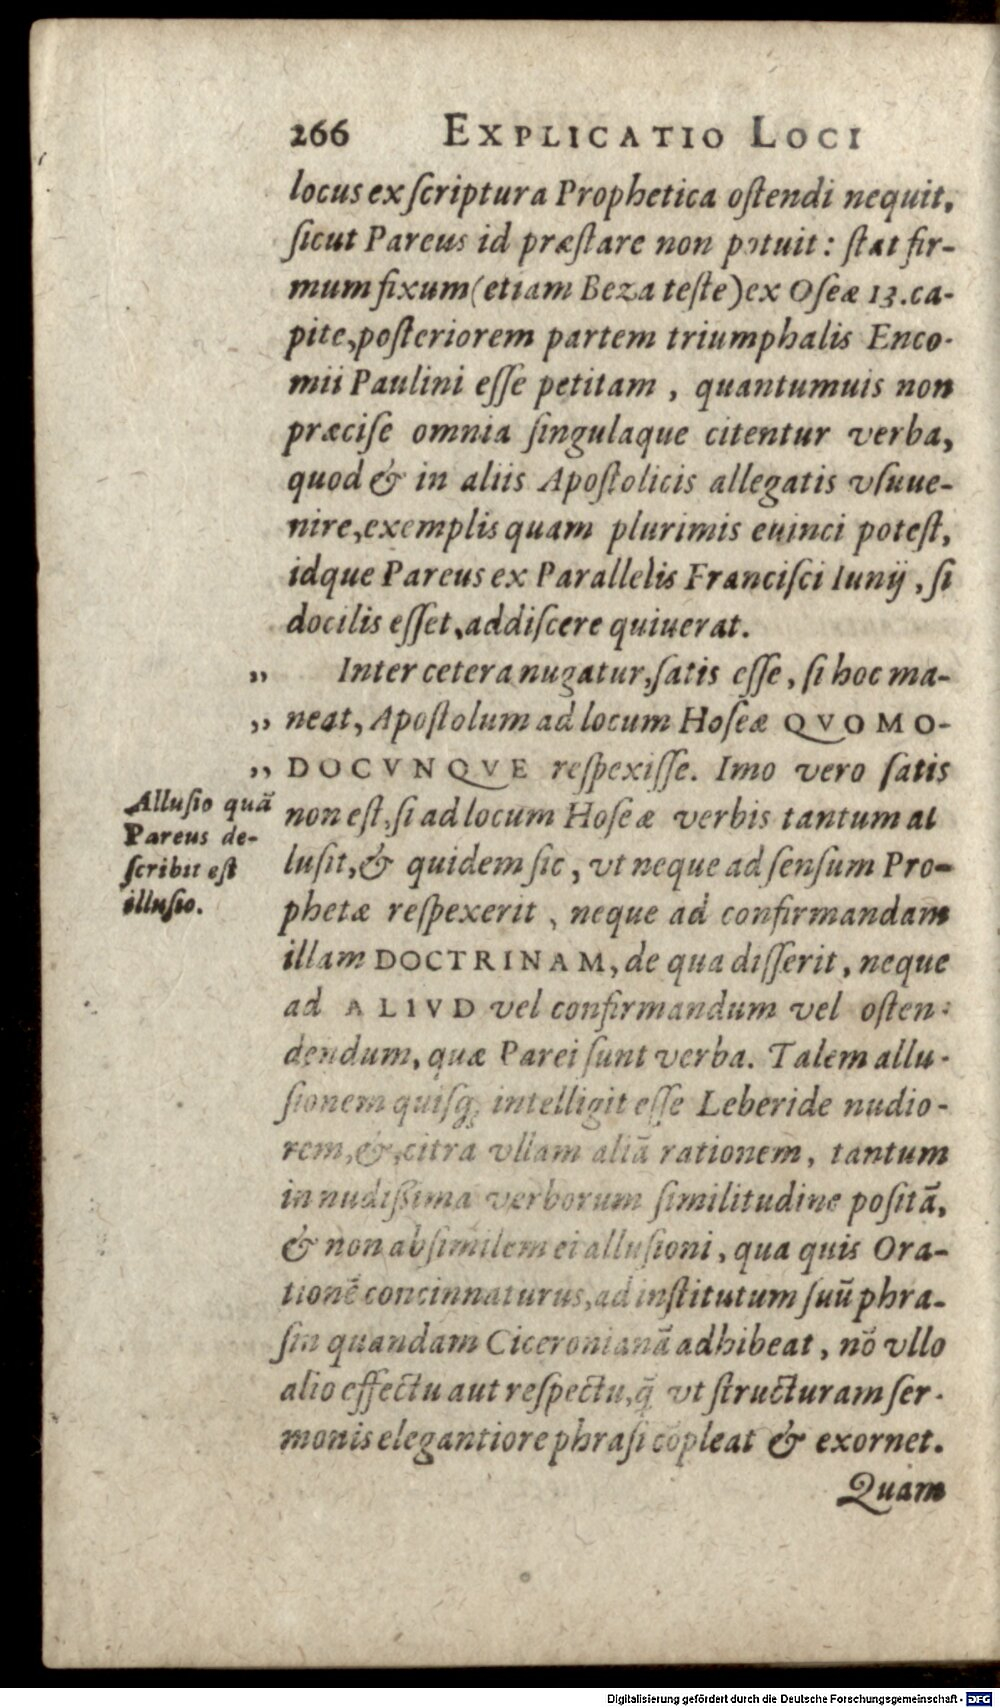 266 EXPLICATIO LOCI
locus ex ſcriptura Prophetica oſtendi nequit,
ſicut Pareus id præſtare non potuit: ſtat fir-
mum fixum (etiam Beza teſte) ex Oſeæ 13. ca-
pite, poſteriorem partem triumphalis Enco-
mii Paulini eſſe petitam, quantumuis non
præciſe omnia ſingulaque citentur verba,
quod & in aliis Apoſtolicis allegatis vſuue-
nire, exemplis quam plurimis euinci poteſt,
idque Pareus ex Parallelis Franciſci Iunij, ſi
docilis eſſet, addiſcere quiuerat.
„ Inter cetera nugatur, ſatis eſſe, ſi hoc ma-
„ neat, Apoſtolum ad locum Hoſeæ QVOMO-
„ DOCVNQVE reſpexiſſe. Imo vero ſatis
non eſt, ſi ad locum Hoſeæ verbis tantum al
luſit, & quidem ſic, vt neque ad ſenſum Pro-
phetæ reſpexerit, neque ad confirmandam
illam DOCTRINAM, de qua diſſerit, neque
ad ALIVD vel confirmandum vel oſten-
dendum, quæ Parei ſunt verba. Talem allu-
ſionem quiſq; intelligit eſſe Leberide nudio-
rem, &, citra vllam aliā rationem, tantum
in nudiſsima verborum ſimilitudine poſitā,
& non abſimilem ei alluſioni, qua quis Ora-
tionē concinnaturus, ad inſtitutum ſuū phra-
ſin quandam Ciceronianā adhibeat, nō vllo
alio effectu aut reſpectu, q̄ vt ſtructuram ſer-
monis elegantiore phraſi cōpleat & exornet.
Quam
Alluſio quā
Pareus de-
ſcribit eſt
illuſio.
Digitalisierung gefördert durch die Deutsche Forschungsgemeinschaft - DFG